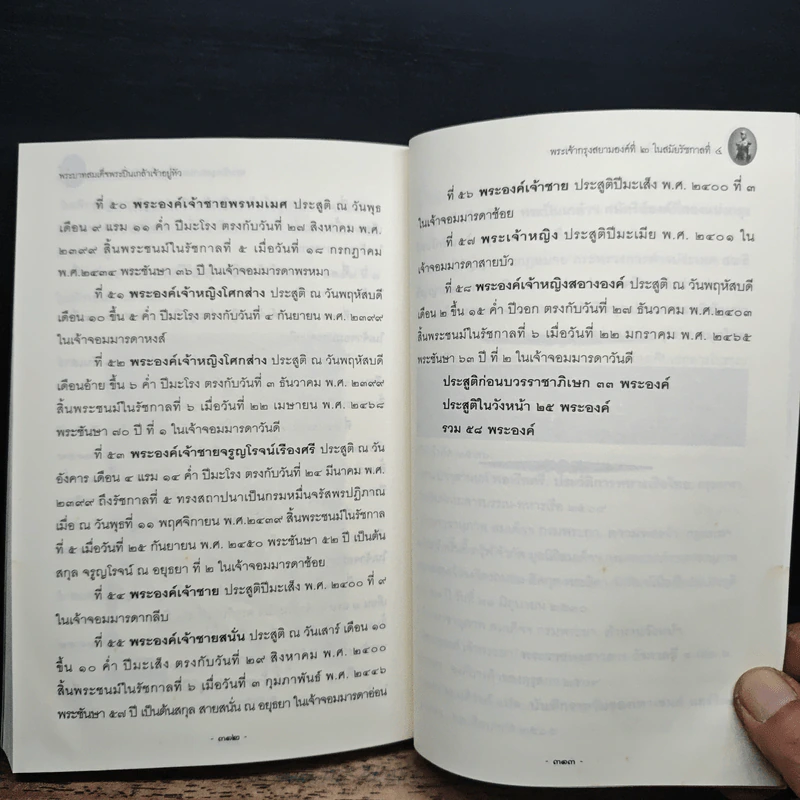 พระบาทสมเด็จพระปิ่นเกล้าเจ้าอยู่หัว
ที่ ๕๐ พระองค์เจ้าชายพรหมเมศ ประสูติ ณ วันพุธ
เดือน ๙ แรม ๑๑ ค่ำ ปีมะโรง ตรงกับวันที่ ๒๗ สิงหาคม พ.ศ.
๒๓๙๙ สิ้นพระชนม์ในรัชกาลที่ ๕ เมื่อวันที่ ๑๘ กรกฎาคม
พ.ศ.๒๔๓๔ พระชันษา ๓๖ ปี ในเจ้าจอมมารดาพรหมา
ที่ ๕๑ พระองค์เจ้าหญิงโศกส่าง ประสูติ ณ วันพฤหัสบดี
เดือน ๑๐ ขึ้น ๕ ค่ำ ปีมะโรง ตรงกับวันที่ ๔ กันยายน พ.ศ. ๒๓๙๙
ในเจ้าจอมมารดาหงส์
ที่ ๕๒ พระองค์เจ้าหญิงโศกส่าง ประสูติ ณ วันพฤหัสบดี
เดือนอ้าย ขึ้น ๖ ค่ำ ปีมะโรง ตรงกับวันที่ ๓ ธันวาคม พ.ศ. ๒๓๙๙
สิ้นพระชนม์ในรัชกาลที่ ๖ เมื่อวันที่ ๒๒ เมษายน พ.ศ. ๒๔๖๘
พระชันษา ๗๐ ปี ที่ ๑ ในเจ้าจอมมารดาวันดี
ที่ ๕๓ พระองค์เจ้าชายจรูญโรจน์เรืองศรี ประสูติ ณ วัน
อังคาร เดือน ๔ แรม ๑๔ ค่ำ ปีมะโรง ตรงกับวันที่ ๒๔ มีนาคม พ.ศ.
๒๓๙๙ ถึงรัชกาลที่ ๕ ทรงสถาปนาเป็นกรมหมื่นจรัสพรปฏิภาณ
เมื่อ ณ วันพุธที่ ๑๑ พฤศจิกายน พ.ศ.๒๔๓๙ สิ้นพระชนม์ในรัชกาล
ที่ ๕ เมื่อวันที่ ๒๕ กันยายน พ.ศ. ๒๔๕๐ พระชันษา ๕๒ ปี เป็นต้น
สกุล จรูญโรจน์ ณ อยุธยา ที่ ๒ ในเจ้าจอมมารดาช้อย
ที่ ๕๔ พระองค์เจ้าชาย ประสูติปีมะเส็ง พ.ศ. ๒๔๐๐ ที่ ๙
ในเจ้าจอมมารดากลีบ
ที่ ๕๕ พระองค์เจ้าชายสนั่น ประสูติ ณ วันเสาร์ เดือน ๑๐
ขึ้น ๑๐ ค่ำ ปีมะเส็ง ตรงกับวันที่ ๒๙ สิงหาคม พ.ศ. ๒๔๐๐
สิ้นพระชนม์ในรัชกาลที่ ๖ เมื่อวันที่ ๓ กุมภาพันธ์ พ.ศ. ๒๔๔๖
พระชันษา ๕๗ ปี เป็นต้นสกุล สายสนั่น ณ อยุธยา ในเจ้าจอมมารดาอ่อน
- ๓๑๒ -
พระเจ้ากรุงสยามองค์ที่ ๒ ในสมัยรัชกาลที่ ๔
ที่ ๕๖ พระองค์เจ้าชาย ประสูติปีมะเส็ง พ.ศ. ๒๔๐๐ ที่ ๓
ในเจ้าจอมมารดาช้อย
ที่ ๕๗ พระเจ้าหญิง ประสูติปีมะเมีย พ.ศ. ๒๔๐๑ ใน
เจ้าจอมมารดาสายบัว
ที่ ๕๘ พระองค์เจ้าหญิงสอางองค์ ประสูติ ณ วันพฤหัสบดี
เดือน ๒ ขึ้น ๑๕ ค่ำ ปีวอก ตรงกับวันที่ ๒๗ ธันวาคม พ.ศ.๒๔๐๓
สิ้นพระชนม์ในรัชกาลที่ ๖ เมื่อวันที่ ๒๒ มกราคม พ.ศ. ๒๔๖๕
พระชันษา ๖๓ ปี ที่ ๒ ในเจ้าจอมมารดาวันดี
ประสูติก่อนบวรราชาภิเษก ๓๓ พระองค์
ประสูติในวังหน้า ๒๕ พระองค์
รวม ๕๘ พระองค์
- ๓๑๓ -